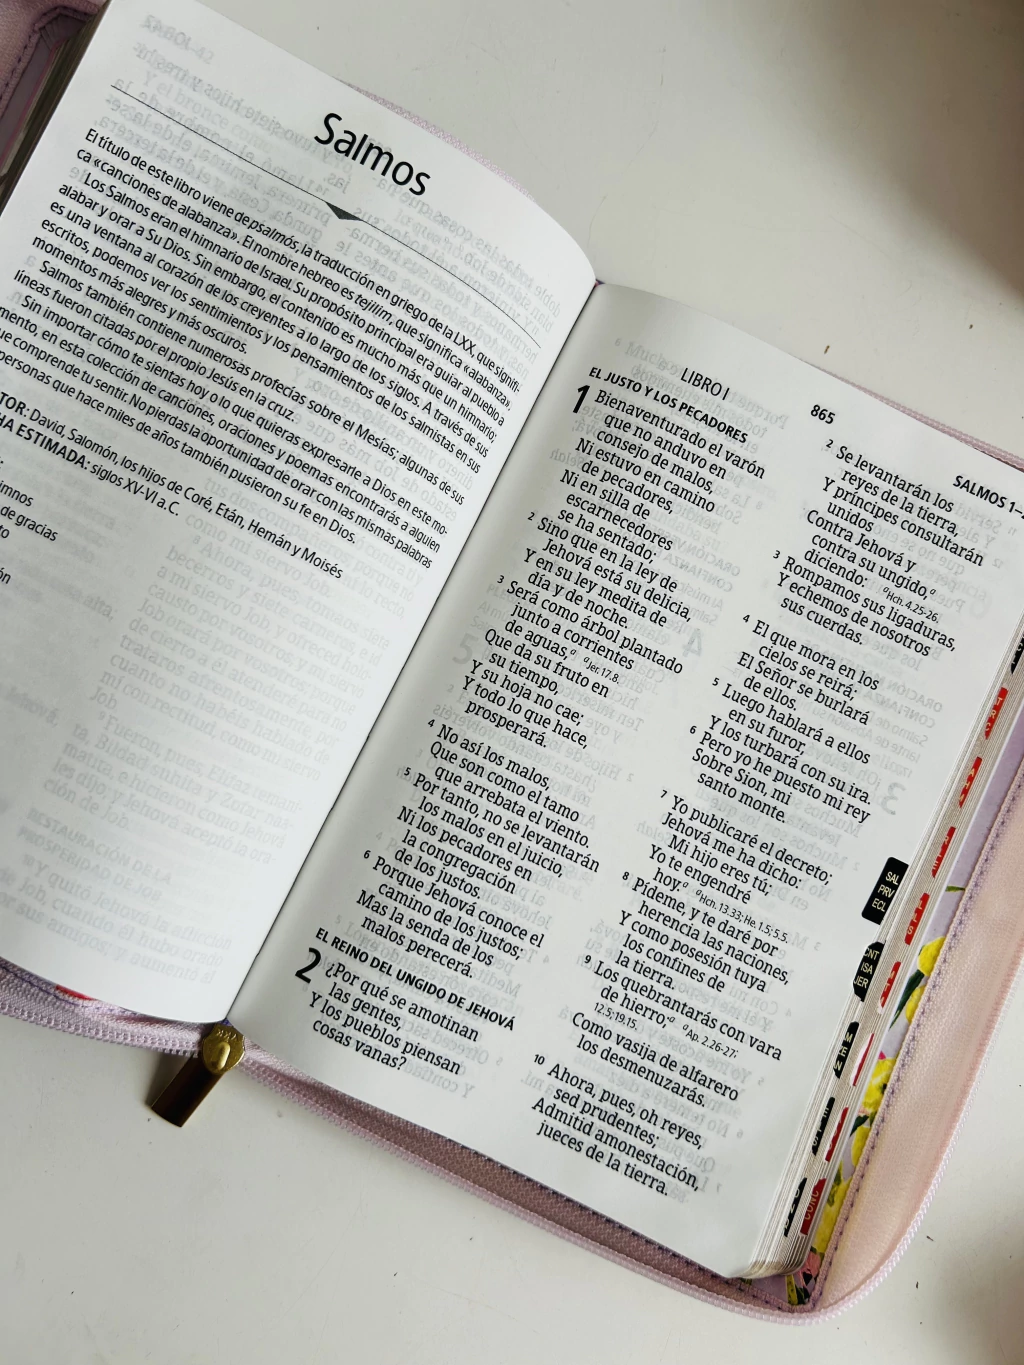 Salmos
El título de este libro viene de psalmós, la traducción en griego de la LXX, que signifi-
ca «canciones de alabanza». El nombre hebreo es tejilim, que significa «alabanza».
Los Salmos eran el himnario de Israel. Su propósito principal era guiar al pueblo a
alabar y orar a Su Dios. Sin embargo, el contenido es mucho más que un himnario:
es una ventana al corazón de los creyentes a lo largo de los siglos. A través de sus
escritos, podemos ver los sentimientos y los pensamientos de los salmistas en sus
momentos más alegres y más oscuros.
Salmos también contiene numerosas profecías sobre el Mesías; algunas de sus
líneas fueron citadas por el propio Jesús en la cruz.
Sin importar cómo te sientas hoy o lo que quieras expresarle a Dios en este mo-
mento, en esta colección de canciones, oraciones y poemas encontrarás a alguien
que comprende tu sentir. No pierdas la oportunidad de orar con las mismas palabras
personas que hace miles de años también pusieron su fe en Dios.
TOR: David, Salomón, los hijos de Coré, Etán, Hemán y Moisés
HA ESTIMADA: siglos XV-VI a. C.
imnos
de gracias
to
ón
865
SALMOS 1–
LIBRO I
EL JUSTO Y LOS PECADORES
1 Bienaventurado el varón
que no anduvo en
consejo de malos,
Ni estuvo en camino
de pecadores,
Ni en silla de
escarnecedores
se ha sentado;
2 Sino que en la ley de
Jehová está su delicia,
Y en su ley medita de
día y de noche.
3 Será como árbol plantado
junto a corrientes
de aguas,a a Jer. 17.8.
Que da su fruto en
su tiempo,
Y su hoja no cae;
Y todo lo que hace,
prosperará.
4 No así los malos,
Que son como el tamo
que arrebata el viento.
5 Por tanto, no se levantarán
los malos en el juicio,
Ni los pecadores en
la congregación
de los justos.
6 Porque Jehová conoce el
camino de los justos;
Mas la senda de los
malos perecerá.
EL REINO DEL UNGIDO DE JEHOVÁ
2 ¿Por qué se amotinan
las gentes,
Y los pueblos piensan
cosas vanas?
2 Se levantarán los
reyes de la tierra,
Y príncipes consultarán
unidos
Contra Jehová y
contra su ungido,a
diciendo: a Hch. 4.25-26.
3 Rompamos sus ligaduras,
Y echemos de nosotros
sus cuerdas.
4 El que mora en los
cielos se reirá;
El Señor se burlará
de ellos.
5 Luego hablará a ellos
en su furor,
Y los turbará con su ira.
6 Pero yo he puesto mi rey
Sobre Sion, mi
santo monte.
7 Yo publicaré el decreto;
Jehová me ha dicho:
Mi hijo eres tú;
Yo te engendré
hoy.a a Hch. 13.33; He. 1.5; 5.5.
8 Pídeme, y te daré por
herencia las naciones,
Y como posesión tuya
los confines de
la tierra.
9 Los quebrantarás con vara
de hierro;a a Ap. 2.26-27;
12.5; 19.15.
Como vasija de alfarero
los desmenuzarás.
10 Ahora, pues, oh reyes,
sed prudentes;
Admitid amonestación,
jueces de la tierra.
SAL
PRV
ECL
CNT
ISA
JER
CONC